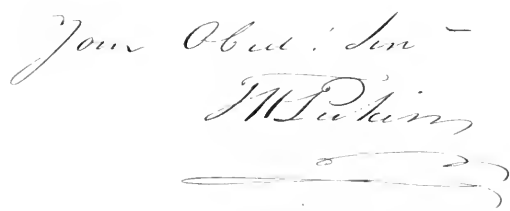 Your Obed! Serv
T H Perkins